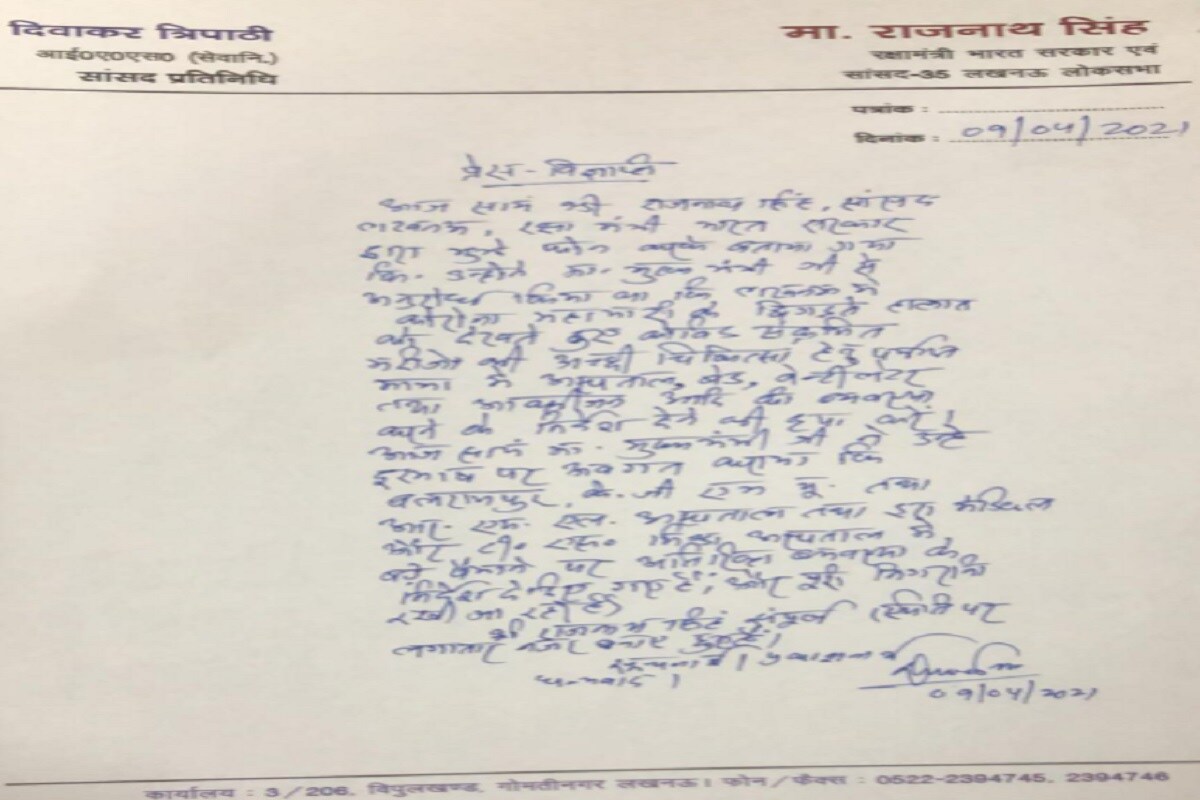 दिवाकर त्रिपाठी
आई0ए0एस0 (सेवानि.)
सांसद प्रतिनिधि
मा. राजनाथ सिंह
रक्षामंत्री भारत सरकार एवं
सांसद-35 लखनऊ लोकसभा
पत्रांक :
दिनांक : 09/04/2021
प्रेस-विज्ञप्ति
आज सायं श्री राजनाथ सिंह, सांसद
लखनऊ, रक्षा मंत्री भारत सरकार
द्वारा मुझे फोन करके बताया गया
कि उन्होंने मा. मुख्य मंत्री जी से
अनुरोध किया था कि लखनऊ में
कोरोना महामारी के बिगड़ते हालात
को देखते हुए कोविड संक्रमित
मरीजों की अच्छी चिकित्सा हेतु पर्याप्त
मात्रा में अस्पताल, बेड, वेन्टीलेटर
तथा आक्सीजन आदि की व्यवस्था
करने के निर्देश देने की कृपा करें।
आज सायं मा. मुख्यमंत्री जी ने उन्हें
दूरभाष पर अवगत कराया कि
बलरामपुर, के.जी एम यू. तथा
आर. एम. एल. अस्पताल तथा इरा मेडिकल
और टी. एस. मिश्रा अस्पताल में
बड़े पैमाने पर अतिरिक्त व्यवस्था के
निर्देश दे दिए गए हैं, और पूरी निगरानी
रखी जा रही है।
श्री राजनाथ सिंह संपूर्ण स्थिति पर
लगातार नजर बनाए हुए हैं।
सूचनार्थ। प्रकाशनार्थ
धन्यवाद।
09/04/2021
कार्यालय : 3/206, विपुलखण्ड, गोमतीनगर लखनऊ। फोन/फैक्स : 0522-2394745, 2394746